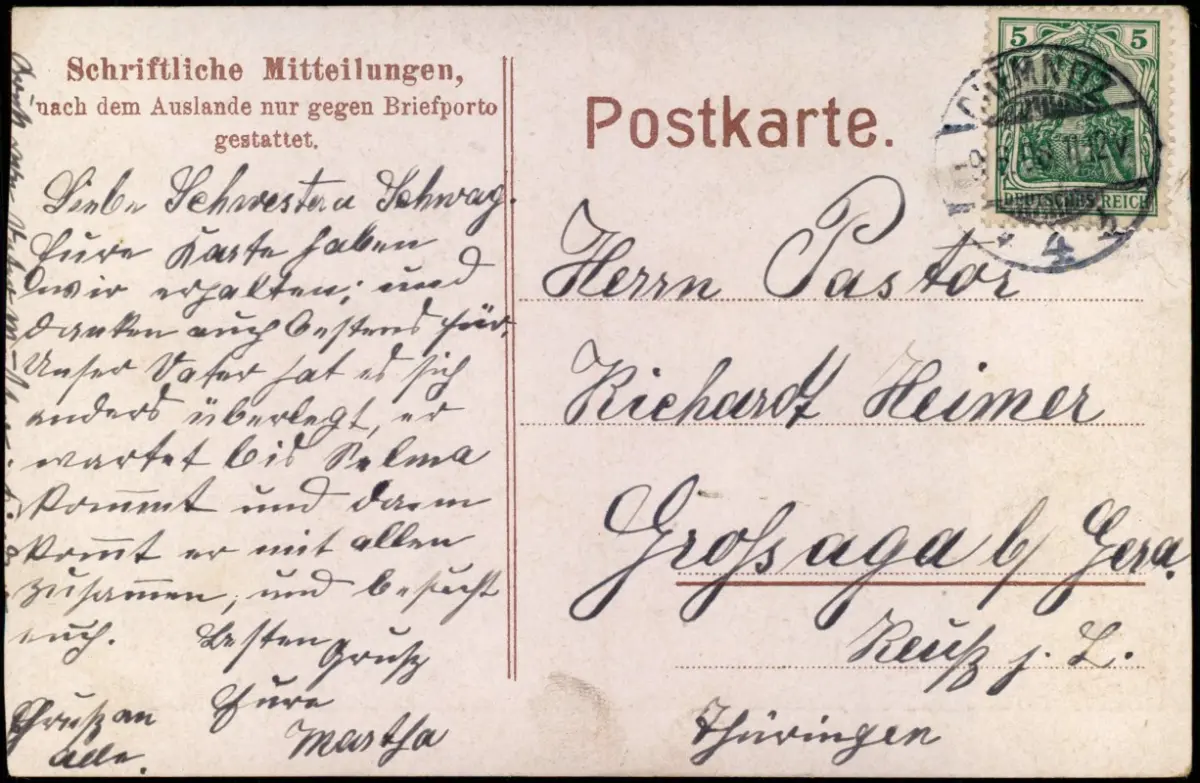 Schriftliche Mitteilungen,
nach dem Auslande nur gegen Briefporto
gestattet.
Postkarte.
5 5
DEUTSCHES REICH
CHEMNITZ
11-12 V
4 h
Liebe Schwester u Schwag.
Eure Karte haben
wir erhalten; und
danken auch bestens für.
Unser Vater hat es sich
anders überlegt, er
wartet bis Selma
kommt und dann
kommt er mit allen
zusammen, und besucht
euch. Besten Gruß
Eure
Martha
Gruß an
alle.
Herrn Pastor
Richardt Heimer
Grossaga b/ Gera.
Reuß j. L.
Thüringen